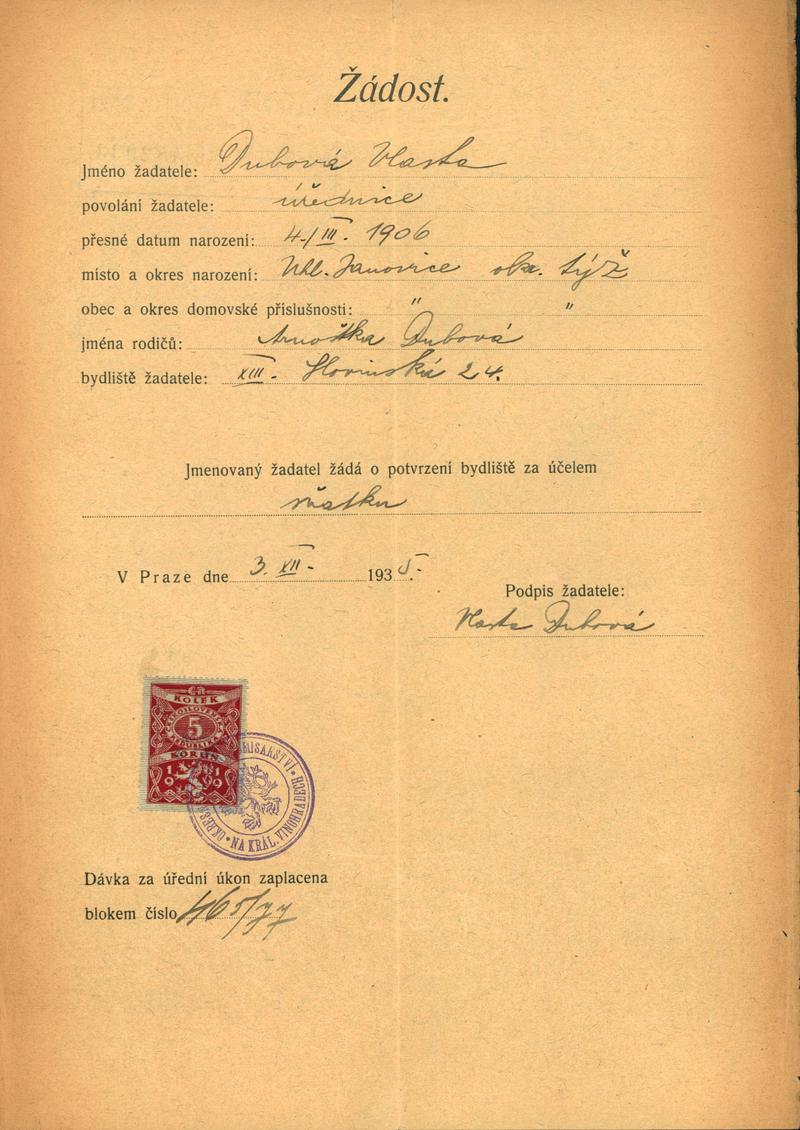 Žádost.
Jméno žadatele: Dubová Vlasta
povolání žadatele: úřednice
přesné datum narození: 4./III. 1906
místo a okres narození: Uhl. Janovice okr. týž
obec a okres domovské příslušnosti: " "
jména rodičů: Arnoštka Dubová
bydliště žadatele: XIII. Slovinská 24.
Jmenovaný žadatel žádá o potvrzení bydliště za účelem
sňatku
V Praze dne 3. XII. 1935.
Podpis žadatele:
Vlasta Dubová
ČR
KOLEK
5
KORUN
1919
NA KRÁL. VINOHRADECH
Dávka za úřední úkon zaplacena
blokem číslo 465/77